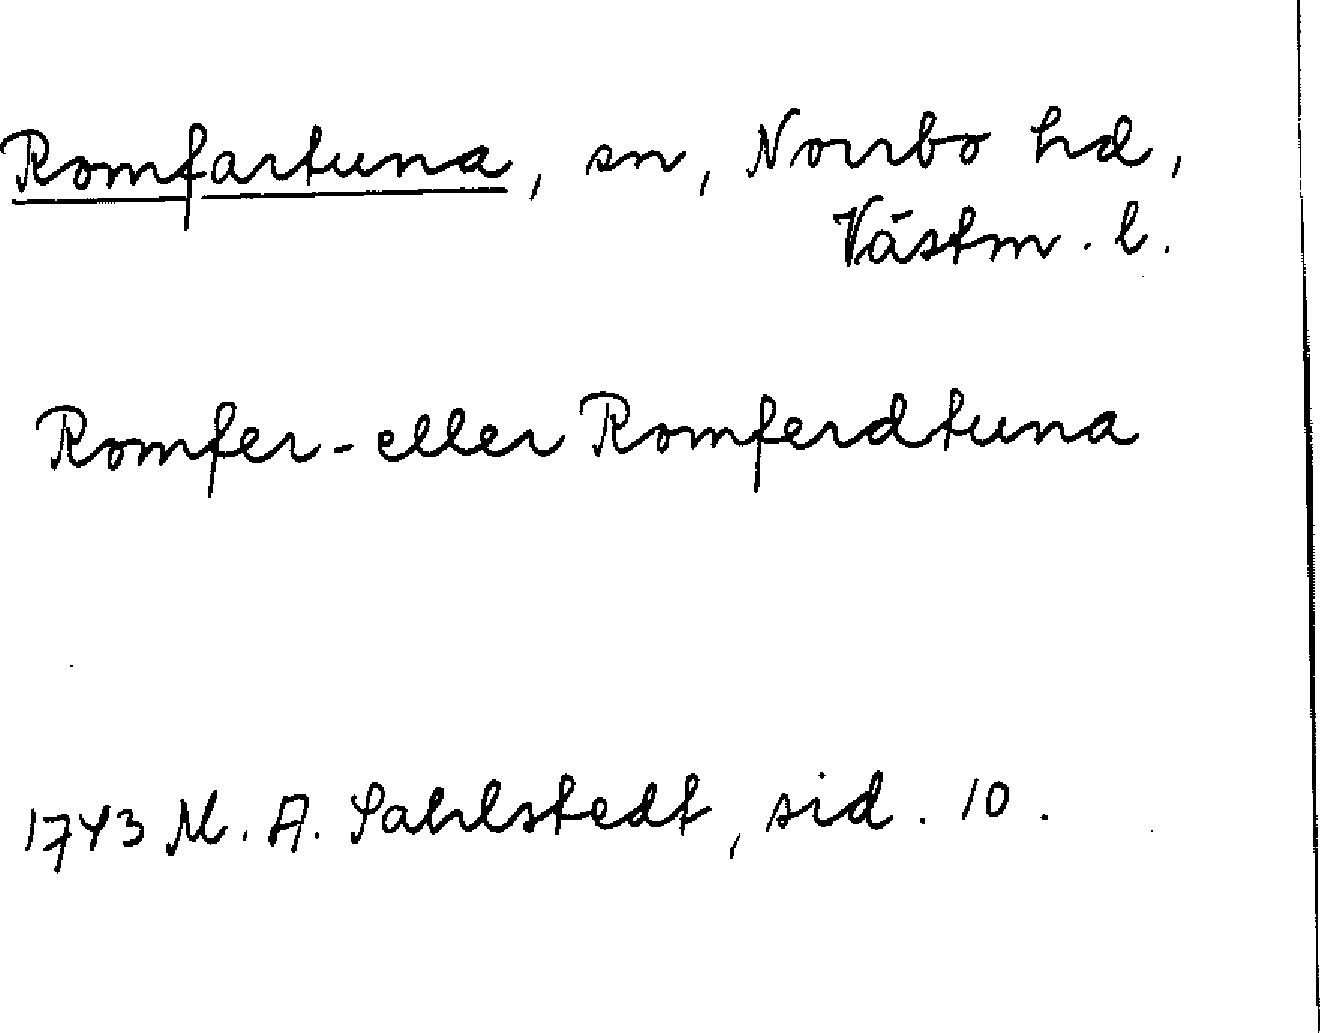 Romfartuna, sn, Norrbo hd,
Västm. l.
Romfer- eller Romferdtuna
1743 M. A. Sahlstedt, sid. 10.